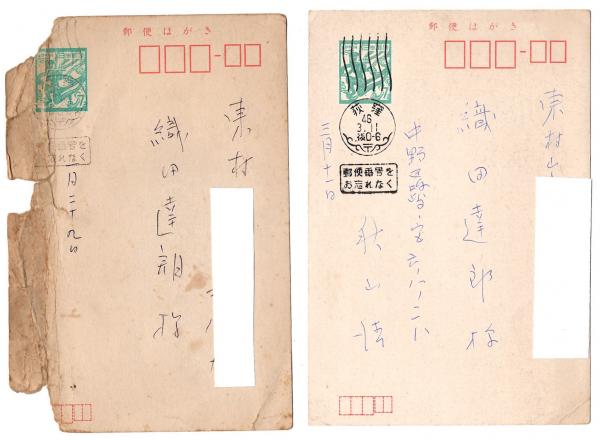 郵便はがき
7
東村
織田達朗様
一月二十九日
郵便番号を
お忘れなく
郵便はがき
7
荻窪
46
3.11
後0-6
郵便番号を
お忘れなく
東村山
織田達郎様
中野区
秋山清
三月十一日